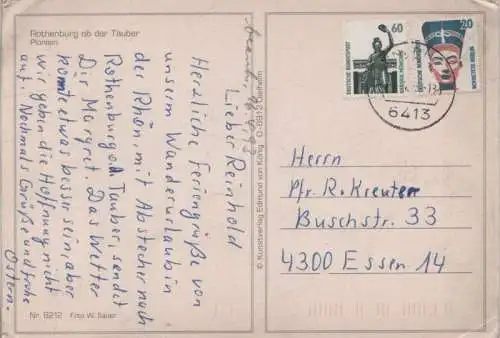 Rothenburg ob der Tauber
Plönlein
Lieber Reinhold
Herzliche Feriengrüße von
unserm Wanderurlaub in
der Rhön, mit Abstecher nach
Rothenburg o.d. Tauber, sendet
Dir Margret. Das Wetter
könnte etwas besser sein, aber
wir geben die Hoffnung nicht
auf. Nochmals Grüße und frohe
Ostern.
Nr. 9212 Foto W. Sauer
© Kunstverlag Edmund von König D-6912 Dielheim
60
DEUTSCHE BUNDESPOST
20
DEUTSCHE BUNDESPOST
NOFRETETE BERLIN
6413
Herrn
Pfr. R. Kreuter
Buschstr. 33
4300 Essen 14